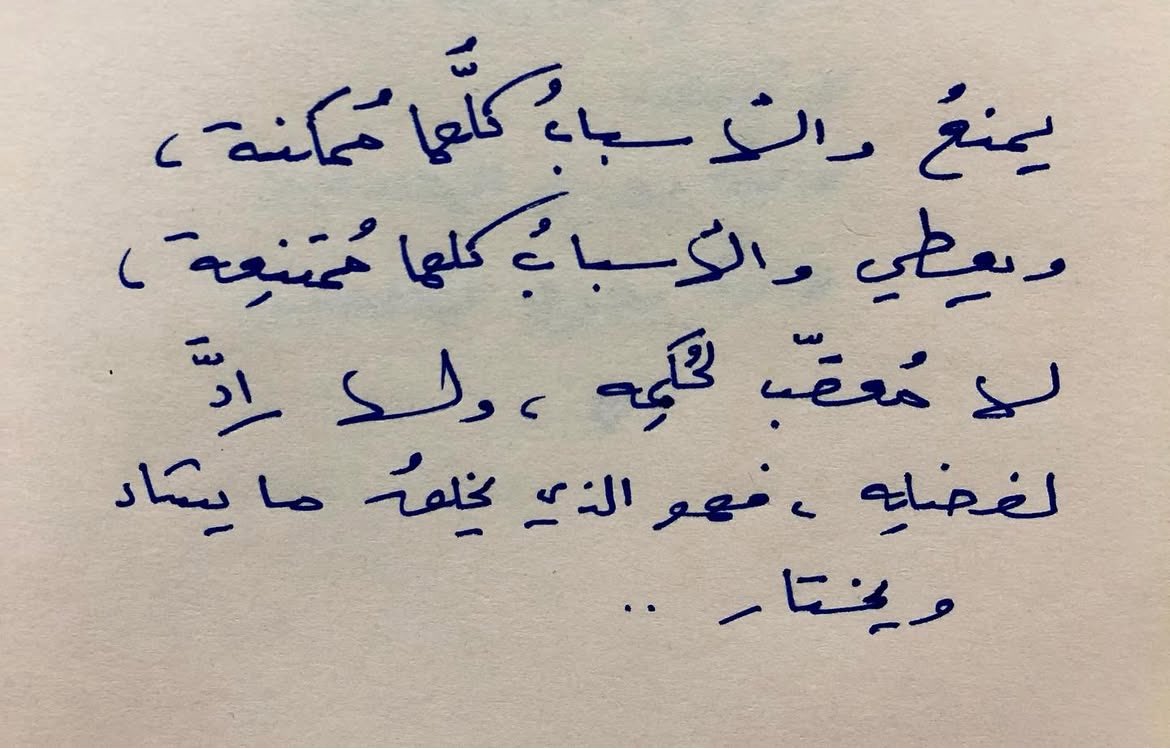 يمنعُ والأسبابُ كلُّها مُمكنة ،
ويعطي والأسبابُ كلها مُمتنِعة ،
لا مُعقّب لحُكمِه ، ولا رادَّ
لفضلِه ، فهو الذي يخلقُ ما يشاء
ويختار ..